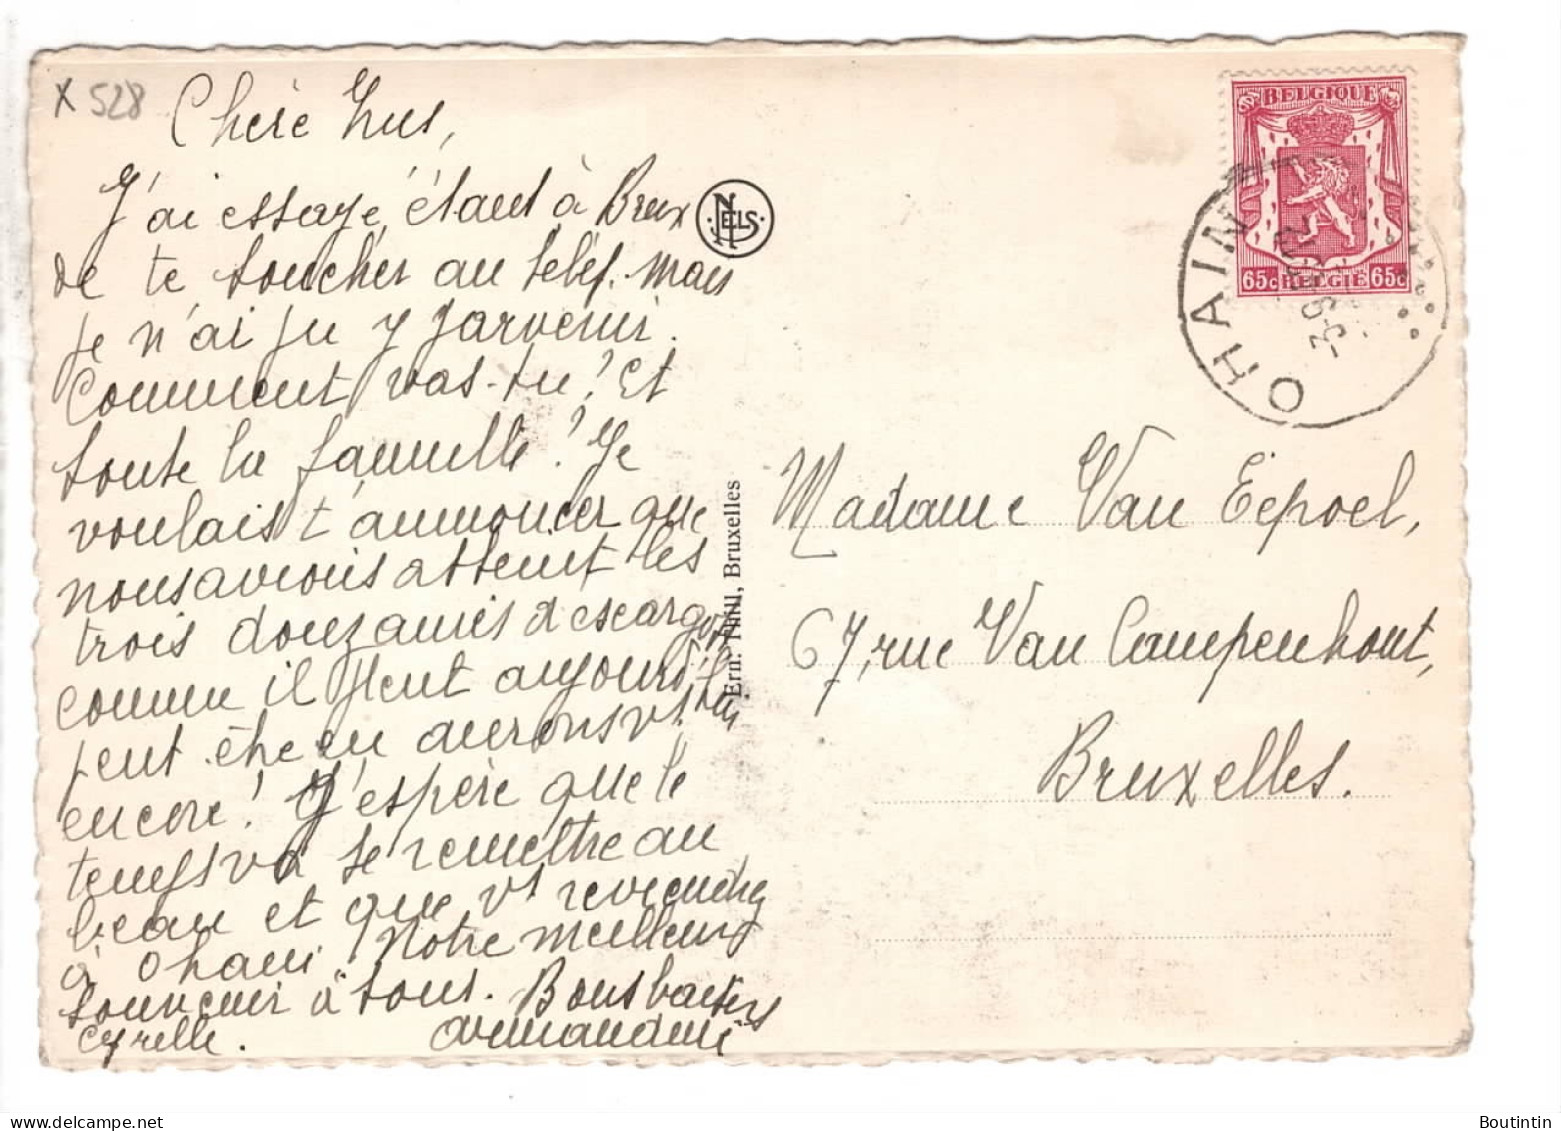 X 528
Chère
J'ai essayé, étant à Brux
de te toucher au télèf. mais
je n'ai pu y parvenir.
Comment vas-tu? Et
toute la famille? Je
voulais t'annoncer que
nous avions atteint les
trois douzaines d'escargots
comme il pleut aujourd'hui
peut être en aurons vs
encore! J'espère que le
temps va se remettre au
beau et que vs reviendrez
à Ohain! Notre meilleurs
souvenir à tous. Bons baisers
Cyrelle. Armandine
NELS
Ern. Thill, Bruxelles
BELGIQUE
65c BELGIE 65c
OHAIN
Madame Van Eepoel,
67, rue Van Campenhout,
Bruxelles.
Boutintin